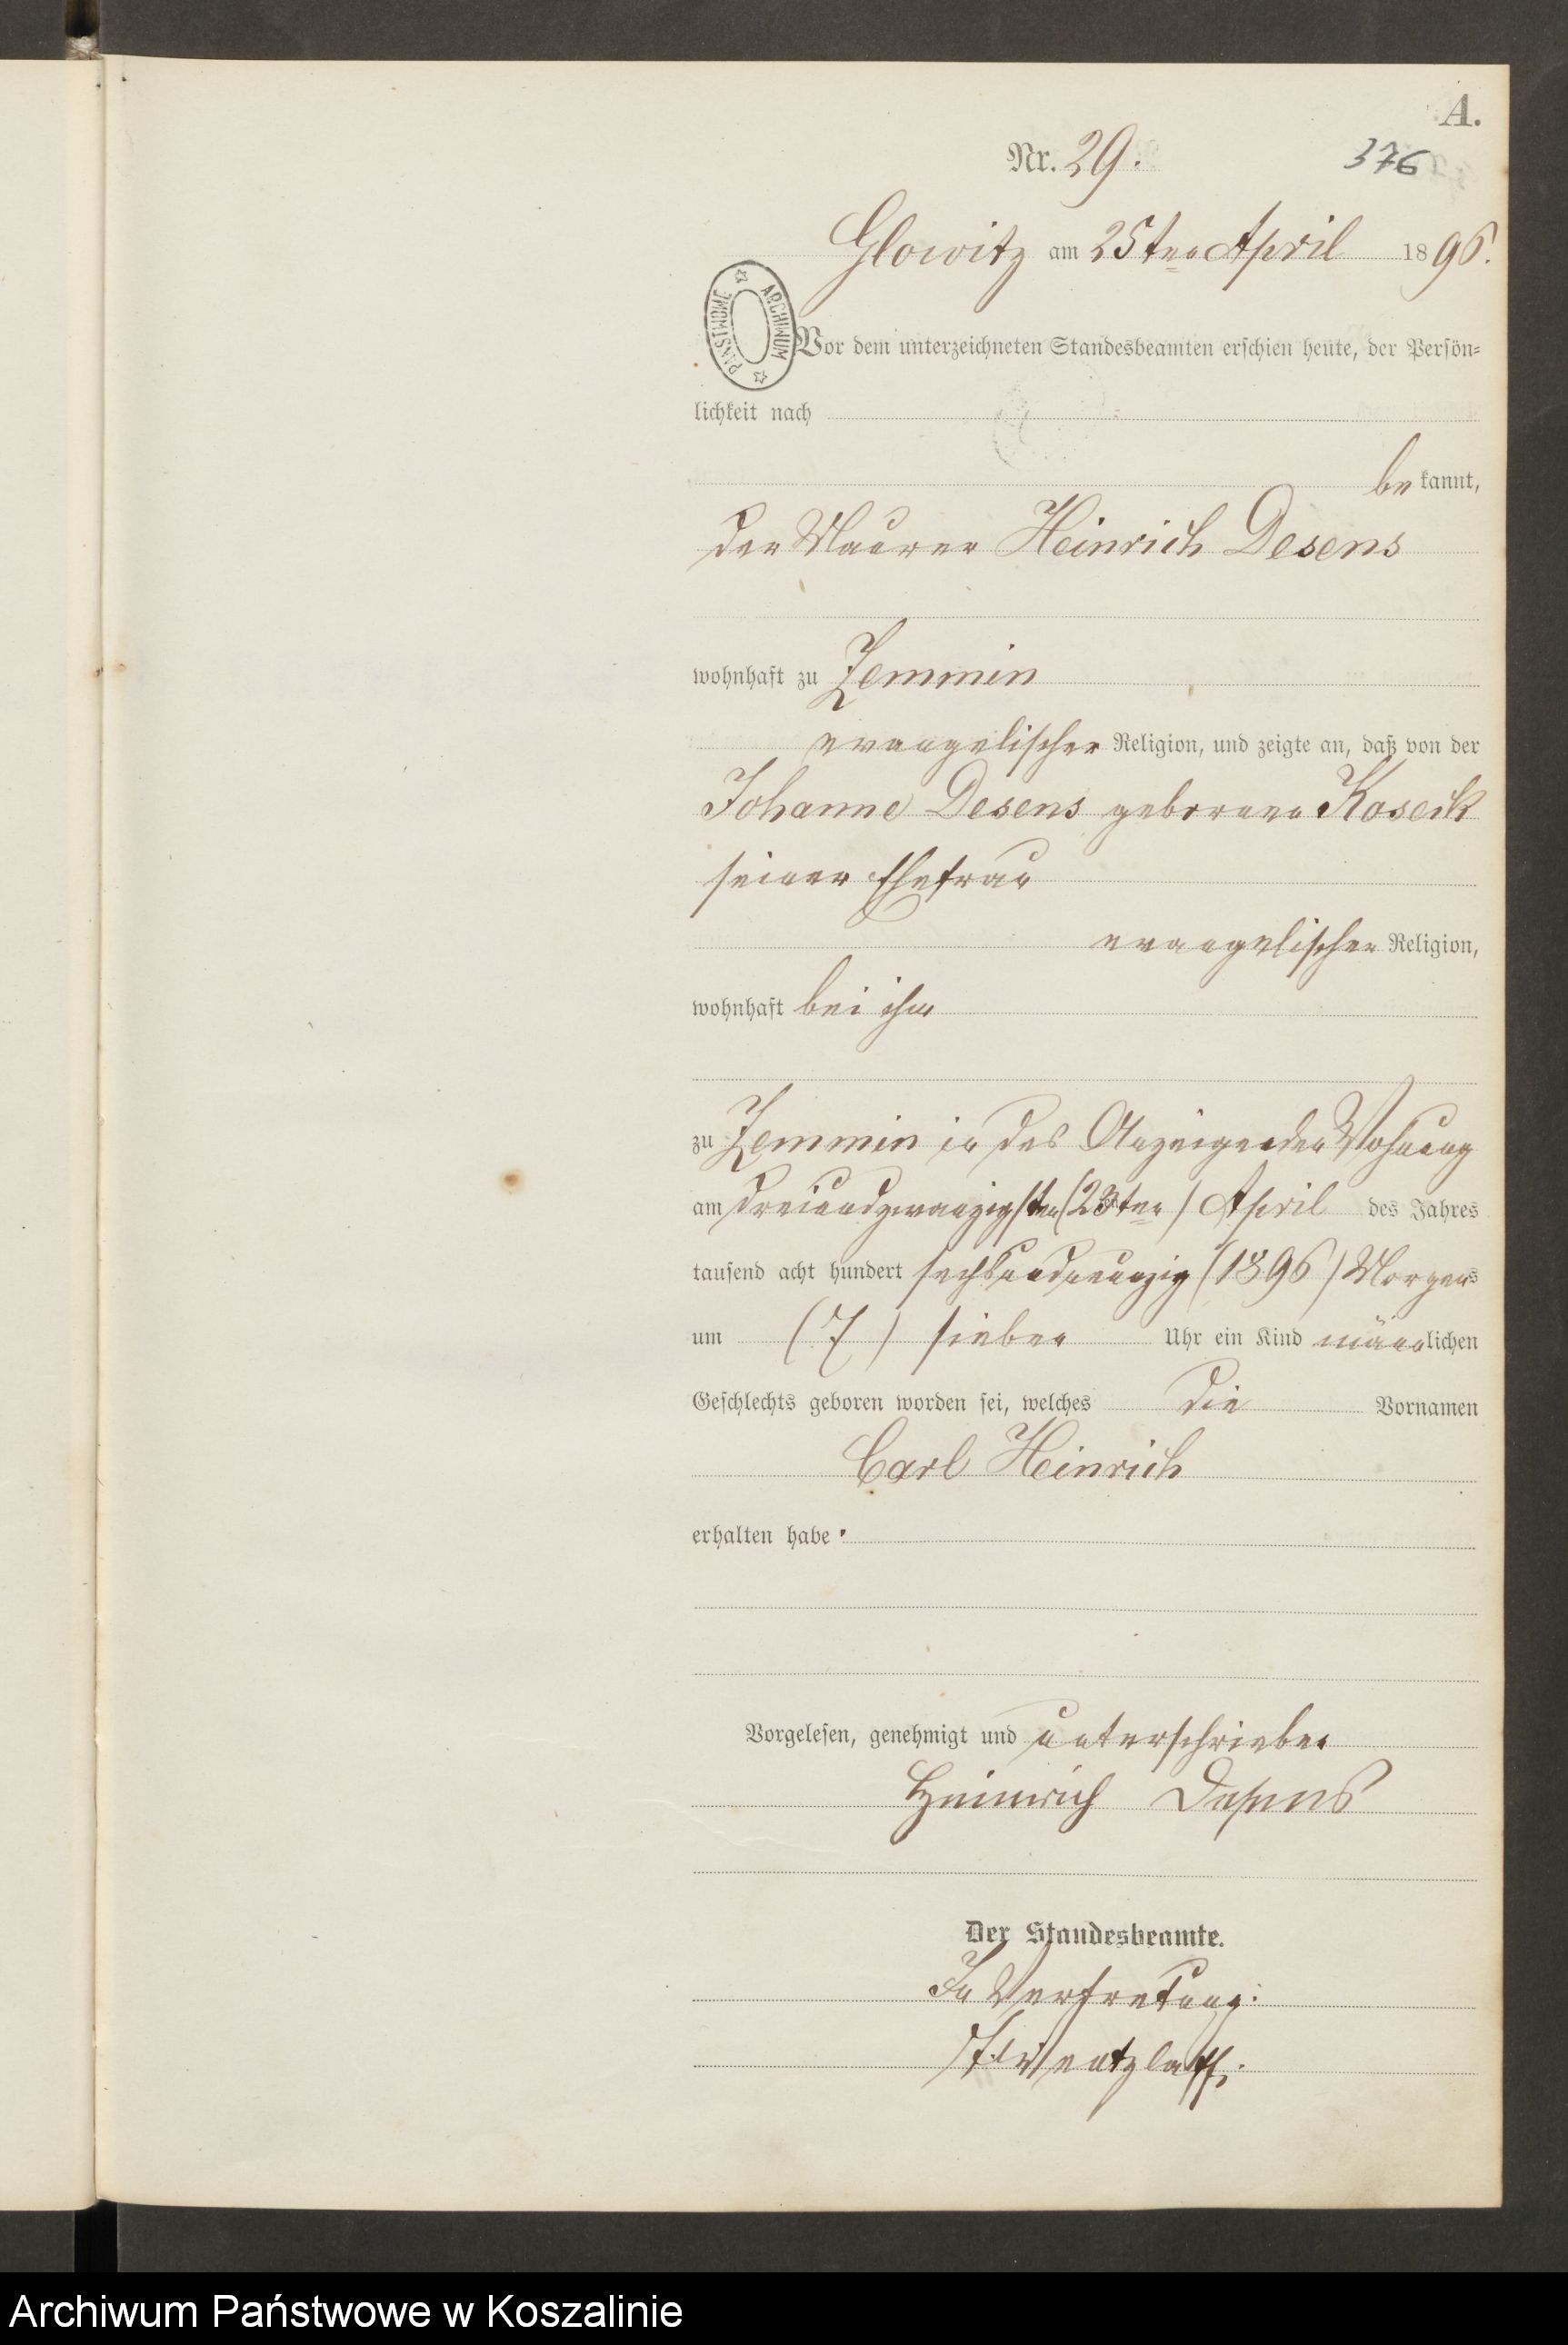 A.
Nr. 29.
376
Glowitz am 25ten April 1896.
ARCHIWUM PAŃSTWOWE
Vor dem unterzeichneten Standesbeamten erschien heute, der Persön=
lichkeit nach
bekannt,
der Maurer Heinrich Desens
wohnhaft zu Zemmin
evangelischer Religion, und zeigte an, daß von der
Johanne Desens geborene Koseck
seiner Ehefrau
evangelischer Religion,
wohnhaft bei ihm
zu Zemmin in des Anzeigenden Wohnung
am dreiundzwanzigsten (23ten) April des Jahres
tausend acht hundert sechsundneunzig (1896) Morgens
um (7) sieben Uhr ein Kind männlichen
Geschlechts geboren worden sei, welches die Vornamen
Carl Heinrich
erhalten habe.
Vorgelesen, genehmigt und unterschrieben
Heinrich Desens
Der Standesbeamte.
In Vertretung:
Archiwum Państwowe w Koszalinie